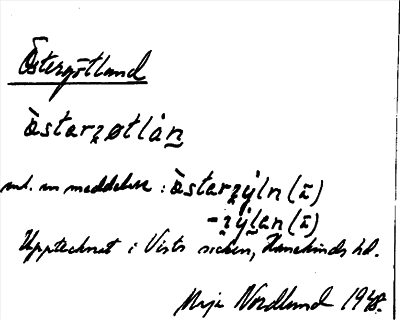 Östergötland
òstarzøtlån
ml. m meddelare : òstarzýln (ī)
- zýlan (ī)
Upptecknat i Vists socken, Hanekinds hd.
Maja Nordlund 1948.